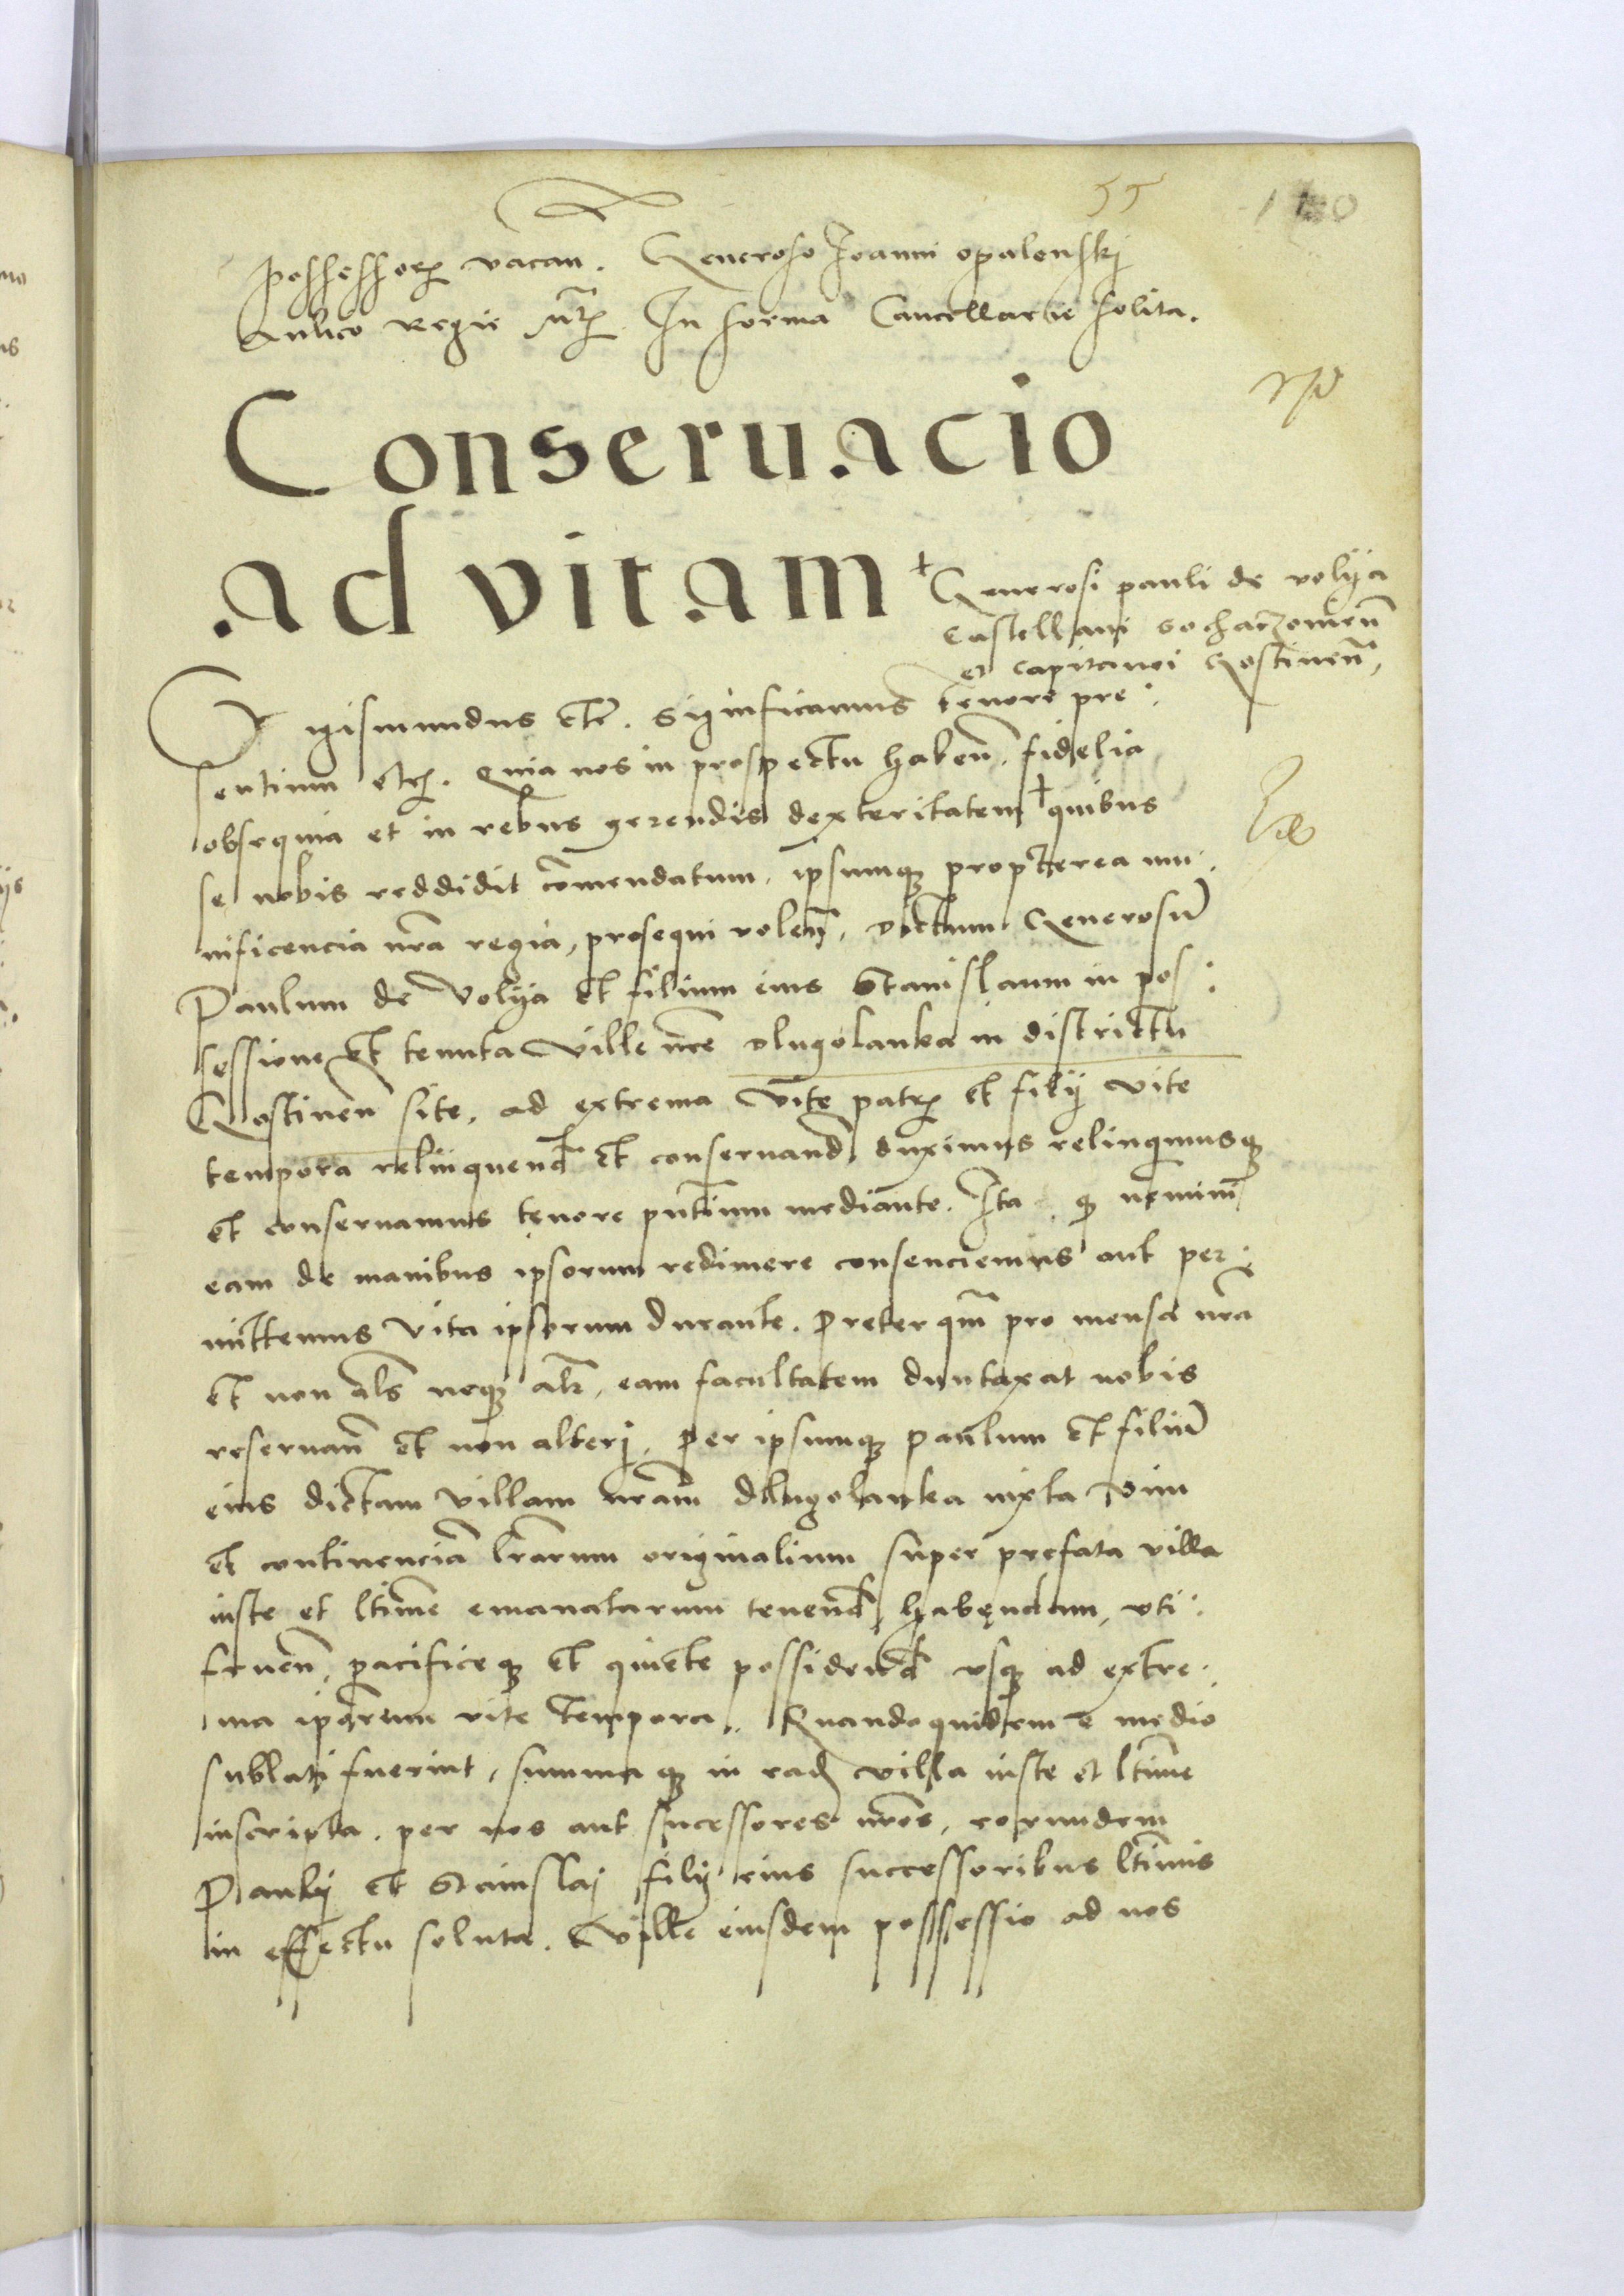 55
possessorem vacan. Generoso Joanni opalenskj
Aulico Regie In forma Cancellarie solita.
Conseruacio
ad vitam
+ Generosi pauli de volija
Castellani sochaczouien̄
et capitanei Gostinen̄
Sigismundus etc. significamus tenore pre:
sentium etc. Quia nos in prospectu haben̄. fidelia
obsequia et in rebus gerendis dexteritatem + quibus
se nobis reddidit cōmendatum. ipsumqꝫ propterea mu:
nificencia nr̄a regia, prosequi volen̄. dictum Generosū
Paulum de Volija et filium eius Stanislaum in pos:
sessione et tenuta Ville nr̄e dlugolanka in districtu
Gostinen̄ site, ad extrema vite patris et filij vite
tempora relinquend̄ et conseruand̄ duximus relinquimusqꝫ
et conseruamus tenore pn̄tium mediante. Ita qꝫ nemini
eam de manibus ipsorum redimere consenciemus aut per:
mittemus vita ipsorum durante. preterqm̄ pro mensa nr̄a
et non als̄ neqꝫ alr̄, eam facultatem duntaxat nobis
reseruan̄ et non alterj. per ipsumqꝫ paulum et filiū
eius dictam villam nr̄am dlugolanka iuxta vim
et continenciā lr̄arum originalium super prefata villa
iuste et ltīme emanatarum tenend̄, habendam, vti:
fruen̄, pacificeqꝫ et quiete possidend̄ vsqꝫ ad extre:
ma ipsorum vite tempora. Quandoquidem e medio
sublati fuerint, summaqꝫ in ead̄ villa iuste et ltīme
inscripta. per nos aut successores nr̄os, eorundem
Paulj et Stanislaj filij eius successoribus ltīmis
in effectu soluta. Ville eiusdem possessio ad nos